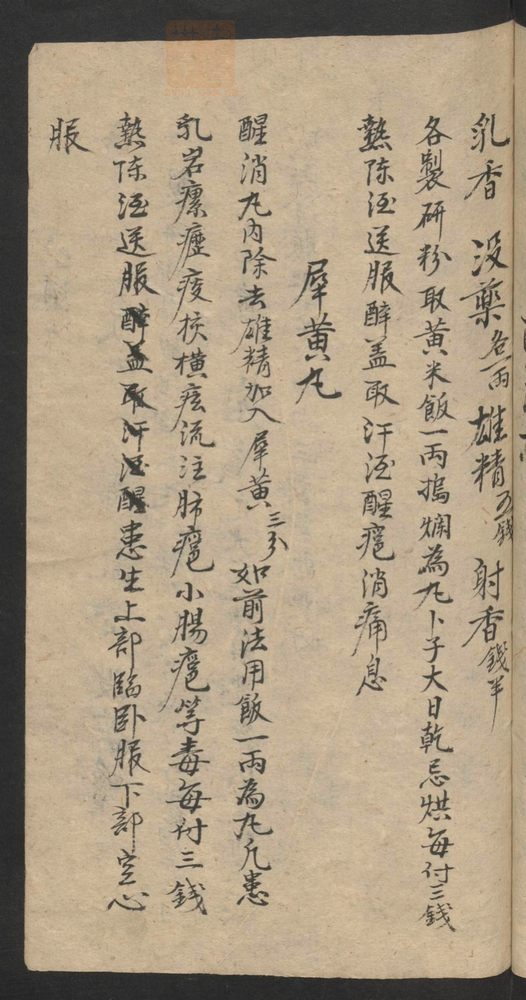 乳香 没藥各一两 雄精五錢 射香錢半
各製研粉取黄米飯一两搗爛為丸卜子大日乾忌烘每付三錢
熱陈酒送服醉盖取汗酒醒癰消痛息
犀黄丸
醒消丸内除去雄精加入犀黄三分如前法用飯一两為丸凡患
乳岩瘰癧痰核横痃流注肺癰小腸癰等毒每付三錢
熱陈酒送服醉盖取汗酒醒患生上部臨卧服下部空心
服